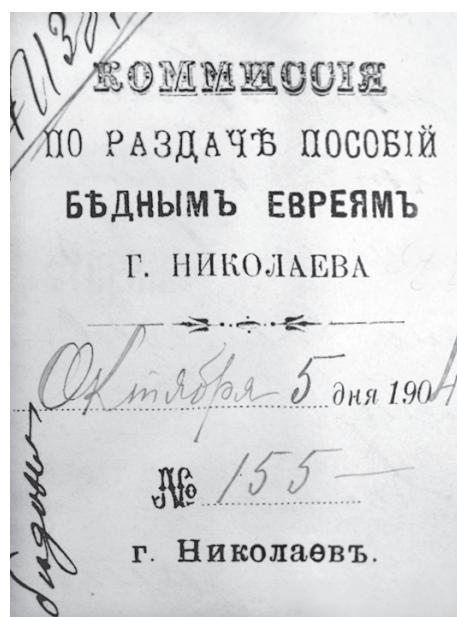 КОММИССІЯ
ПО РАЗДАЧѢ ПОСОБІЙ
БѢДНЫМЪ ЕВРЕЯМЪ
Г. НИКОЛАЕВА
Октября 5 дня 1904
№ 155 —
г. Николаевъ.